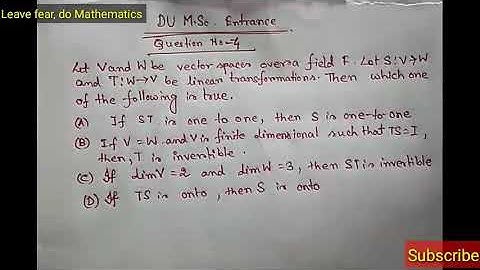 Leave fear, do Mathematics
DU M.Sc. Entrance
Question No-4
Let V and W be vector spaces over a field F. Let S:V→W
and T:W→V be linear transformations. Then which one
of the following is true.
(A) If ST is one to one, then S is one-to one
(B) If V = W and V is finite dimensional such that TS=I,
then, T is invertible.
(C) If dimV=2 and dimW=3, then ST is invertible
(D) If TS is onto, then S is onto
Subscribe